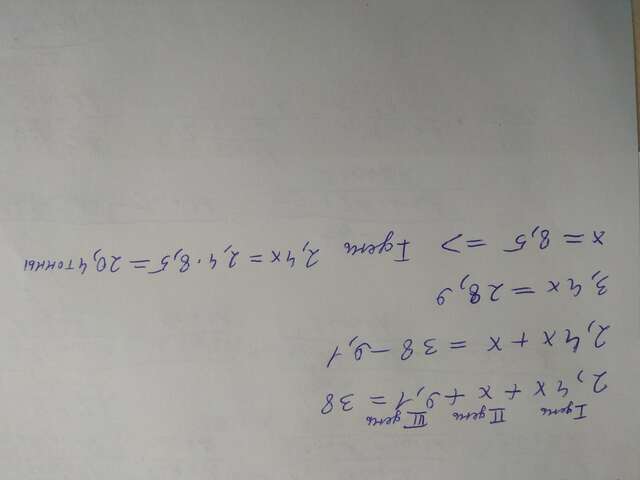 I день II день III день
2,4x + x + 9,1 = 38
2,4x + x = 38 - 9,1
3,4x = 28,9
x = 8,5 => I день 2,4x = 2,4 · 8,5 = 20,4 тонны